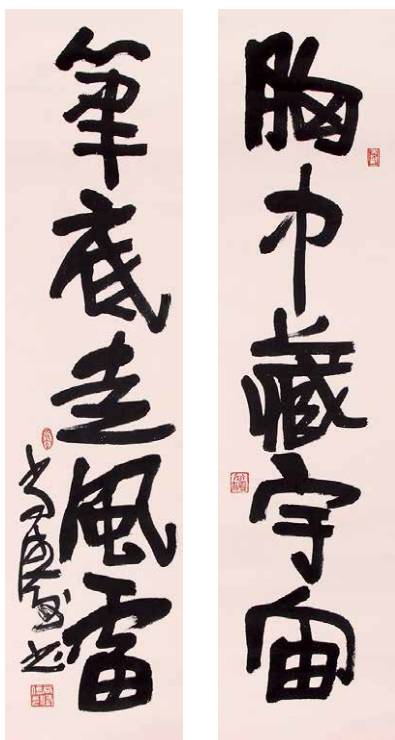 胸中藏宇宙
筆底走風雷